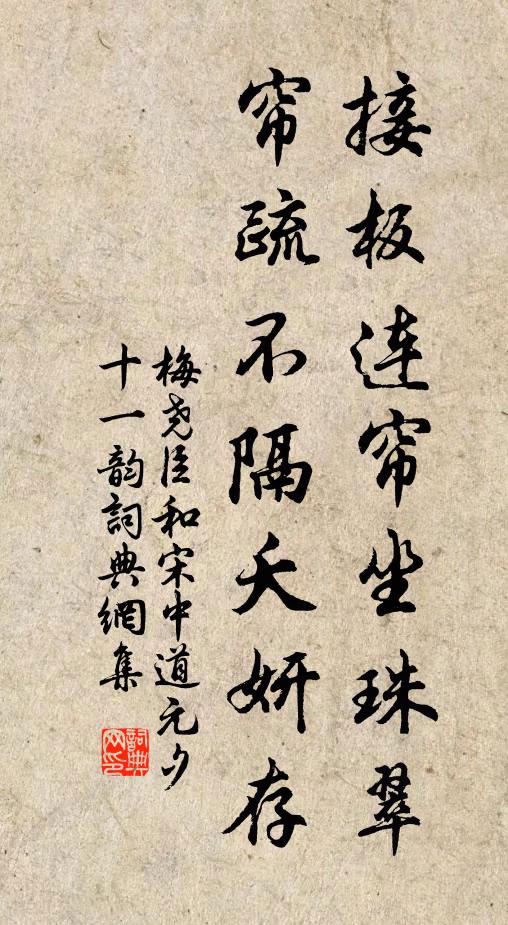 接板连帘坐珠翠
帘疏不隔夭妍存
梅尧臣和宋中道元夕
十一韵詞典網集
詞典網印